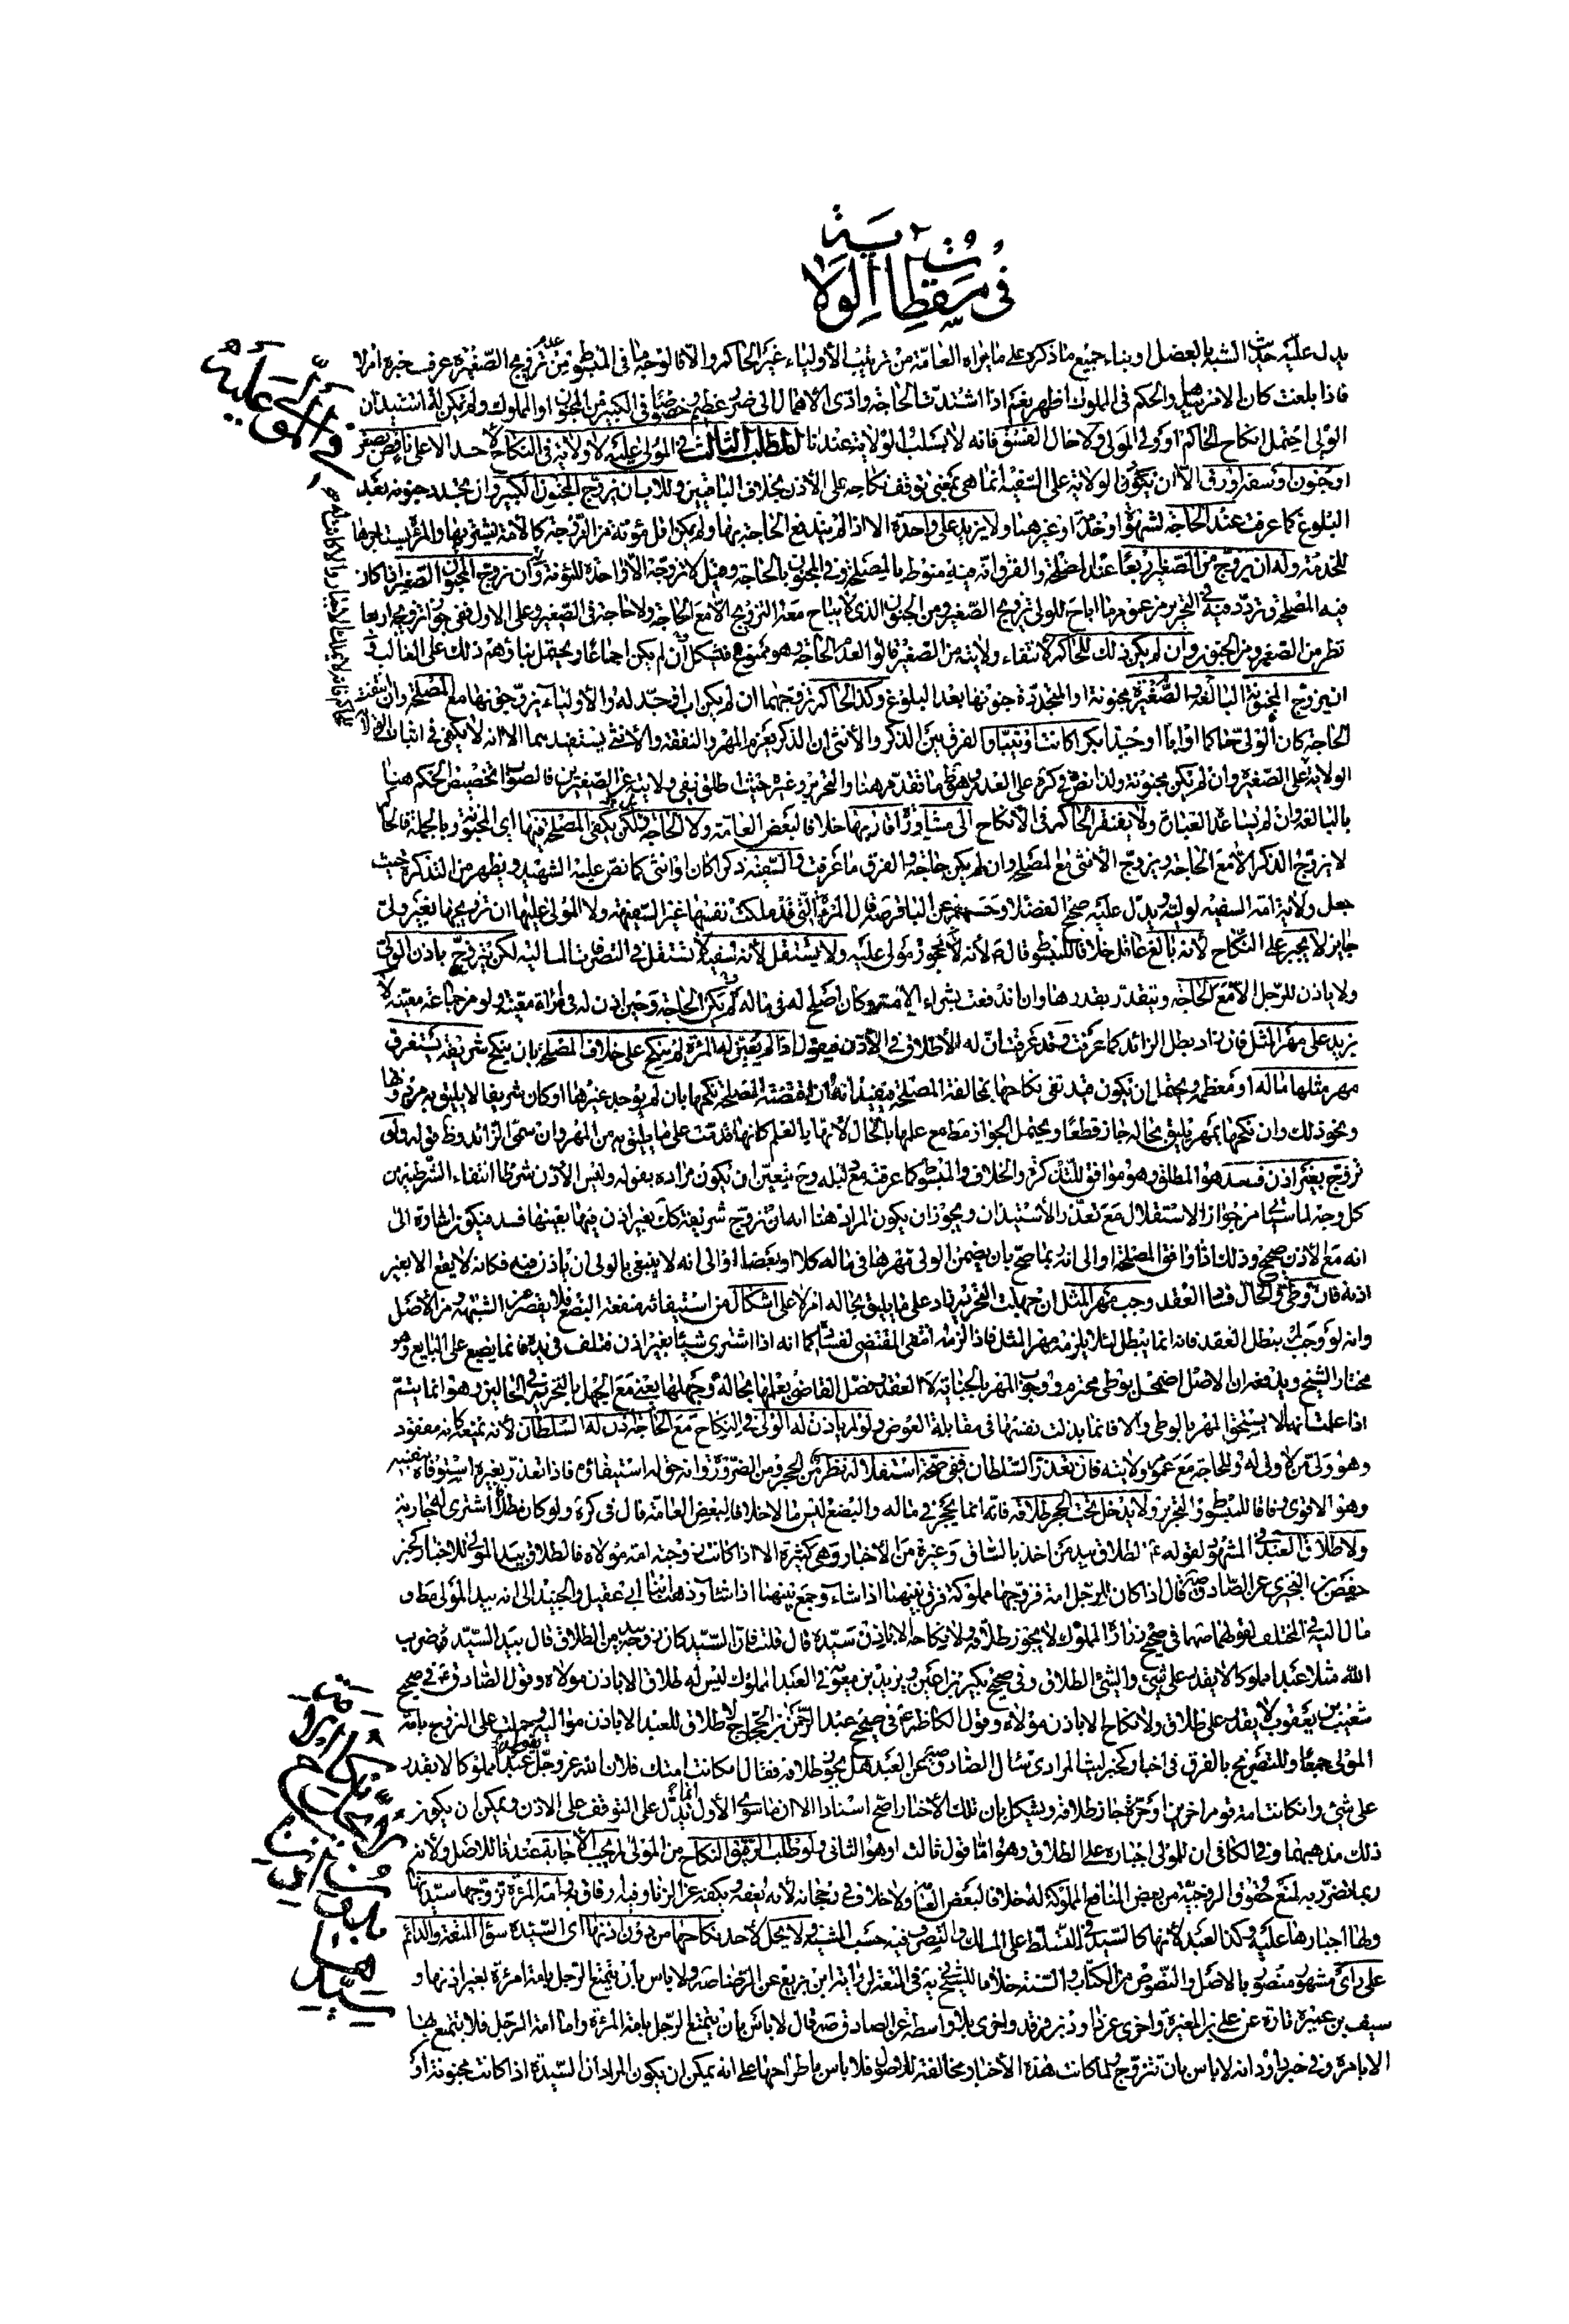 في مسقطات الولاية
في المولى عليه
يدل عليه حديث الشبه بالعضل او بناء جميع ما ذكره على ما يراه العامة من ترتيب الأولياء غير الحاكم والا فالوجه ما في المبسوط من تزويج الصغيرة عرف خبره ام لا
فاذا بلغت كان الامر والحكم في المملوك اظهر نعم اذا اشتدت الحاجة وادى الاهمال الى ضرر عظيم وخصوصا في الكبير من المجنون او المملوك ولم يكن له استيذان
الولي احتمل انكاح الحاكم او ولي المولى ولا حال الفسق فانه لا يسلب الولاية عندنا المطلب الثالث في المولى عليه لا ولاية في النكاح لاحد الا على ناقص بصغر
او جنون او سفه او رق الا ان يكون الولاية على السفيه انما هي بمعنى توقف نكاحه على الاذن بخلاف الباقين وللاب ان يزوج المجنون الكبير وان تجدد جنونه بعد
البلوغ كما عرفت عند الحاجة لشهوة او خدمة او غيرهما ولا يزيد على واحدة الا اذا لم يندفع الحاجة بها ولم يكن اقل مؤنة من الزوجة كالامة يشتريها والمرأة يستاجرها
للخدمة وله ان يزوج من الصغير اربعا عند المصلحة والفرق انه فيه منوط بالمصلحة وفي المجنون بالحاجة وقيل لا تزوجه الا واحدة للمؤنة وان تزوج المجنون الصغير اذا كان
فيه المصلحة وتردد فيه في التحرير من عموم ما اباح للولي تزويج الصغير ومن الجنون الذي لا يباح معه التزويج الا مع الحاجة ولا حاجة في الصغير وعلى الاول ففي جواز تزويجه اربعا
نظر من الصغر ومن الجنون وان لم يكن ذلك للحاكم لانتفاء ولايته من الصغير قالوا لعدم الحاجة وهو ممنوع فيشكل ان لم يكن اجماعا ويحتمل بناؤهم ذلك على الغالب و
ان يزوج المجنونة البالغة والصغيرة مجنونة او المتجددة جنونها بعد البلوغ وكذا الحاكم تزوجهما ان لم يكن اب او جد له والأولياء يزوجونها مع المصلحة وان انتفت
الحاجة كان الولي حاكما او ابا او جدا بكرا كانت او ثيبا والفرق بين الذكر والأنثى ان الذكر يغرم المهر والنفقة والأنثى يستفيدهما الا انه لا يكفي في اثبات
الولاية على الصغيرة وان لم يكن مجنونة ولذا نص في كره على العدم وهو ظ ما تقدم هنا والتحرير وغيره حيث اطلق نفي ولايته عن الصغيرين فالصواب تخصيص الحكم هنا
بالبالغة وان لم يساعد العبارة ولا يفتقر الحاكم في الأنكاح الى مشاورة اقاربها خلافا لبعض العامة ولا الحاجة ولكن يكفي المصلحة فيها اي المجنونة وبالجملة فالحاكم
لا يزوج الذكر الا مع الحاجة ويزوج الأنثى مع المصلحة وان لم يكن حاجة والفرق ما عرفت والسفيه ذكرا كان او انثى كما نص عليه الشهيد ويظهر من التذكرة حيث
جعل ولاية امة السفيه لوليه ويدل عليه صحيح الفضلاء وحسنهم عن الباقر ع قال المرأة التي قد ملكت نفسها غير السفيهة ولا المولى عليها ان تزويجها بغير ولي
جايز لا يجبر على النكاح لأنه بالغ عاقل خلافا للمبسوط قال لأنه لا يجوز مولى عليه ولا يستقل لأنه سفيه لا تستقل في التصرفات المالية لكن يتزوج باذن الولي
ولا ياذن للرجل الا مع الحاجة ويتقدر بقدرها وان اندفعت بشراء الامة وكان اصلح له في ماله لم يكن الحاجة وحين اذن له في امراة معينة او من جماعة معينة لا
يزيد على مهر المثل فان زاد بطل الزائد كما عرفت وقد عرفت ان له الأطلاق في الأذن فيقول اذا لم يعين له المرأة لم ينكح على خلاف المصلحة بان ينكح شريفة يستغرق
مهر مثلها ماله او معظمه ويحتمل ان يكون ضد تفى نكاحها بمخالفة المصلحة مفيدا انه ان اقتضته المصلحة نكحها بان لم يوجد غيرها او كان شريفا لا يليق به من دونها
ونحو ذلك وان نكحها بمهر يليق بحاله جاز قطعا ويحتمل الجواز مط مع علمها بالحال لانها بالعلم كانها قدمت على ما يليق به من المهر وان سمى الزائد وظ قوله ولو
تزوج بغير اذن فسد هو المطلق وهو موافق للتذكرة والخلاف والمبسوط كما عرفته مع دليله وح يتعين ان يكون مراده بقوله وليس الأذن شرطا انتفاء الشرطية من
كل وجه لما سيأتي من جواز الاستقلال مع تعذر الأستيذان ويجوز ان يكون المراد هنا انه ان تزوج شريفة كك بغير اذن فيها بعينها فسد فيكون اشارة الى
انه مع الأذن صحيح وذلك اذا وافق المصلحة او الى انه ربما صح بان يضمن الولي مهرها في ماله كلا او بعضا او الى انه لا ينبغي بالولي ان ياذن فيه فكانه لا يقع الا بغير
اذنه فان وطئ والحال فساد العقد وجب مهر المثل ان جهلت التحريم زاد على ما يليق بحاله ام لا على اشكال من استيفائه منفعة البضع فلا يقصر عن الشبهة ومن الأصل
وانه لو وجب لم يبطل العقد فانه انما يبطل لئلا يلزمه مهر المثل فاذا لزمه انتفى المقتضي لفساده كما انه اذا اشترى شيئا بغير اذن فتلف في يده فانما يضيع على البايع وهو
مختار الشيخ ويدفعه ان الاصل اضمحل بوطئ محترم ووجوب المهر بالجناية لا العقد وفصل القاضي بعلمها بحاله وجهلها يعني مع الجهل بالتحريم في الحالين وهو انما يتم
اذا علمت انها لا يستحق المهر بالوطي والا فانما بذلت نفسها في مقابلة العوض ولو لم ياذن له الولي في النكاح مع الحاجة اذن له السلطان لأنه بمنعه كانه مفقود
وهو ولي من لا ولي له وللحاجة مع عموم ولايته فان تعذر السلطان ففي صحة استقلاله نظر من الحجر ومن الضرورة وانه حق له استيفاؤه فاذا تعذر بغيره استوفاه بنفسه
وهو الاقوى وفاقا للمبسوط والتحرير ولا يدخل تحت الحجر طلاقه فانه انما يحجر في ماله والبضع ليس مالا خلافا لبعض العامة قال في كره ولو كان مطلاقا اشترى له جارية
ولا طلاق العبد في المشهور لقوله ع الطلاق بيد من اخذ بالساق وغيره من الأخبار وهي كثيرة الا اذا كانت زوجته امة مولاه فالطلاق بيد المولى للاخبار كخبر
حفص بن البختري عن الصادق ع قال اذا كان للرجل امة فزوجها مملوكه فرق بينهما اذا شاء وجمع بينهما اذا شاء وذهب ابنا ابي عقيل والجنيد الى انه بيد المولى مط و
مال اليه في المختلف لقولهما ع في صحيح زرارة المملوك لا يجوز طلاقه ولا نكاحه الا باذن سيده قال قلت فان السيد كان زوجه بيد من الطلاق قال بيد السيد ضرب
الله مثلا عبدا مملوكا لا يقدر على شئ والشئ الطلاق وفي صحيح بكير بن اعين وبريد بن معوية في العبد المملوك ليس له طلاق الا باذن مولاه وقول الصادق ع في صحيح
شعيب بن يعقوب لا يقدر على طلاق ولا نكاح الا باذن مولاه وقول الكاظم ع في صحيح عبد الرحمن بن الحجاج لا طلاق للعبد الا باذن مواليه وحملت على التزويج بامة
المولى جمعا وللتصريح بالفرق في اخبار كخبر ليث المرادي سأل الصادق ع عن العبد هل يجوز طلاقه فقال ان كانت امتك فلا ان الله عز وجل يقول عبدا مملوكا لا يقدر
على شئ وان كانت امة قوم اخرين او حرة جاز طلاقه ويشكل بان تلك الأخبار اصح اسنادا الا ان ما سوى الأول انما يدل على التوقف على الاذن ويمكن ان يكون
ذلك مذهبهما وفي الكافي ان للمولى اجباره على الطلاق وهو اما قول ثالث او هو الثاني ولو طلب الرقيق النكاح من المولى لم يجب الأجابة عندنا للاصل ولأنه
ربما تضرر به لمنع حقوق الزوجية من بعض المنافع المملوكة له خلافا لبعض العامة ولا خلاف في رجحانه لأنه يعفه ويكفه عن الزنا وفيه ارفاق به وامة المرأة تزوجها سيدتها
ولها اجبارها عليه وكذا العبد لأنها كالسيد في التسلط على المملوك والتصرف فيه حسب المشيئة ولا يحل لأحد نكاحها من دون اذنها اي السيدة سواء المتعة والدائم
على رأي مشهور منصور بالأصل والنصوص من الكتاب والسنة خلافا للشيخ في يه في المتعة لرواية ابن بزيع عن الرضا ع ولا باس بان يتمتع الرجل بامة امرأة بغير اذنها و
سيف بن عميرة تارة عن علي بن المغيرة واخرى عن داود بن فرقد واخرى بلا واسطة عن الصادق ع قال لا بأس بان يتمتع الرجل بامة المرأة واما امة الرجل فلا يتمتع بها
الا بامره وفي خبر داود انه لا باس بان تتزوج ولما كانت هذه الأخبار مخالفة للاصول فلا باس باطراحها على انه يمكن ان يكون المراد ان السيدة اذا كانت مجنونة او